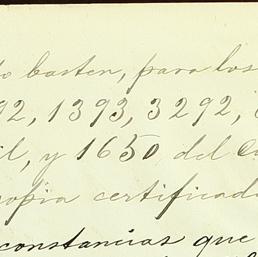 o basten, para los
92, 1393, 3292,
il, y 1650 del C
opia certificad
constancias que